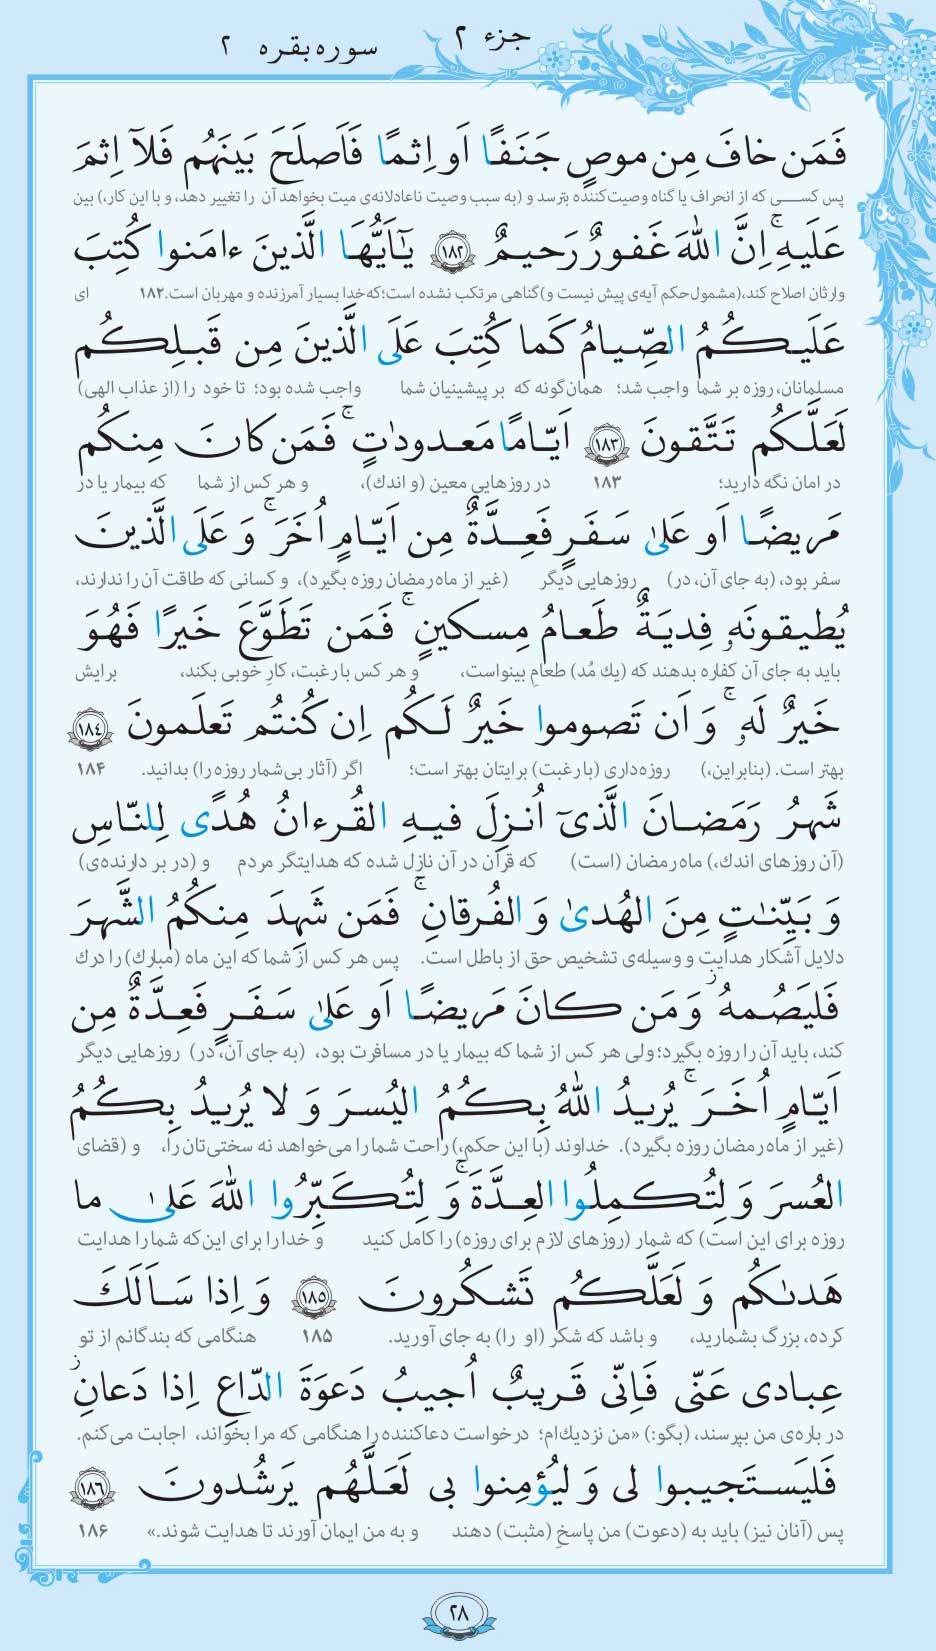 جزء ۲
سوره بقره ۲
فَمَن خافَ مِن موصٍ جَنَفًا اَو اِثمًا فَاَصلَحَ بَينَهُم فَلآ اِثمَ
پس کسی که از انحراف یا گناه وصیت‌کننده بترسد و (به سبب وصیت ناعادلانه‌ی میت بخواهد آن را تغییر دهد، و با این کار،) بین
عَلَيهِ ۚ اِنَّ اللّٰهَ غَفورٌ رَحيمٌ ﴿۱۸۲﴾ يٰٓاَيُّهَا الَّذينَ ءامَنوا كُتِبَ
وارثان اصلاح کند، (مشمول حکم آیه‌ی پیش نیست و) گناهی مرتکب نشده است؛ که خدا بسیار آمرزنده و مهربان است. ۱۸۲ ای
عَلَيكُمُ الصِّيامُ كَما كُتِبَ عَلَى الَّذينَ مِن قَبلِكُم
مسلمانان، روزه بر شما واجب شد؛ همان‌گونه که بر پیشینیان شما واجب شده بود؛ تا خود را (از عذاب الهی)
لَعَلَّكُم تَتَّقونَ ﴿۱۸۳﴾ اَيّامًا مَعدودٰتٍ ۚ فَمَن كانَ مِنكُم
در امان نگه دارید؛ ۱۸۳ در روزهایی معین (و اندك)، و هر کس از شما که بیمار یا در
مَريضًا اَو عَلىٰ سَفَرٍ فَعِدَّةٌ مِن اَيّامٍ اُخَرَ ۚ وَ عَلَى الَّذينَ
سفر بود، (به جای آن، در) روزهایی دیگر (غیر از ماه رمضان روزه بگیرد)، و کسانی که طاقت آن را ندارند،
يُطيقونَهٗ فِديَةٌ طَعامُ مِسكينٍ ۚ فَمَن تَطَوَّعَ خَيرًا فَهُوَ
باید به جای آن کفاره بدهند که (یك مُد) طعامِ بینواست، و هر کس با رغبت، کارِ خوبی بکند، برایش
خَيرٌ لَهٗ ۚ وَ اَن تَصوموا خَيرٌ لَكُم اِن كُنتُم تَعلَمونَ ﴿۱۸٤﴾
بهتر است. (بنابراین،) روزه‌داری (با رغبت) برایتان بهتر است؛ اگر (آثار بی‌شمار روزه را) بدانید. ۱۸۴
شَهرُ رَمَضانَ الَّذىٓ اُنزِلَ فيهِ القُرءانُ هُدًى لِلنّاسِ
(آن روزهای اندك،) ماه رمضان (است) که قرآن در آن نازل شده که هدایتگر مردم و (در بر دارنده‌ی)
وَ بَيِّنٰتٍ مِنَ الهُدىٰ وَ الفُرقانِ ۚ فَمَن شَهِدَ مِنكُمُ الشَّهرَ
دلایل آشکار هدایت و وسیله‌ی تشخیص حق از باطل است. پس هر کس از شما که این ماه (مبارك) را درك
فَليَصُمهُ ۖ وَ مَن كانَ مَريضًا اَو عَلىٰ سَفَرٍ فَعِدَّةٌ مِن
کند، باید آن را روزه بگیرد؛ ولی هر کس از شما که بیمار یا در مسافرت بود، (به جای آن، در) روزهایی دیگر
اَيّامٍ اُخَرَ ۚ يُريدُ اللّٰهُ بِكُمُ اليُسرَ وَ لا يُريدُ بِكُمُ
(غیر از ماه رمضان روزه بگیرد). خداوند (با این حکم،) راحت شما را می‌خواهد نه سختی‌تان را، و (قضای
العُسرَ وَ لِتُكمِلُوا العِدَّةَ ۚ وَ لِتُكَبِّرُوا اللّٰهَ عَلىٰ ما
روزه برای این است) که شمار (روزهای لازم برای روزه) را کامل کنید و خدا را برای این‌که شما را هدایت
هَدىٰكُم وَ لَعَلَّكُم تَشكُرونَ ﴿۱۸۵﴾ وَ اِذا سَاَلَكَ
کرده، بزرگ بشمارید، و باشد که شکر (او را) به جای آورید. ۱۸۵ هنگامی که بندگانم از تو
عِبادى عَنّى فَاِنّى قَريبٌ اُجيبُ دَعوَةَ الدّاعِ اِذا دَعانِ ۖ
در باره‌ی من بپرسند، (بگو:) «من نزدیك‌ام؛ درخواست دعاکننده را هنگامی که مرا بخواند، اجابت می‌کنم.
فَليَستَجيبوا لى وَ ليُؤمِنوا بى لَعَلَّهُم يَرشُدونَ ﴿۱۸۶﴾
پس (آنان نیز) باید به (دعوت) من پاسخِ (مثبت) دهند و به من ایمان آورند تا هدایت شوند.» ۱۸۶
۲۸